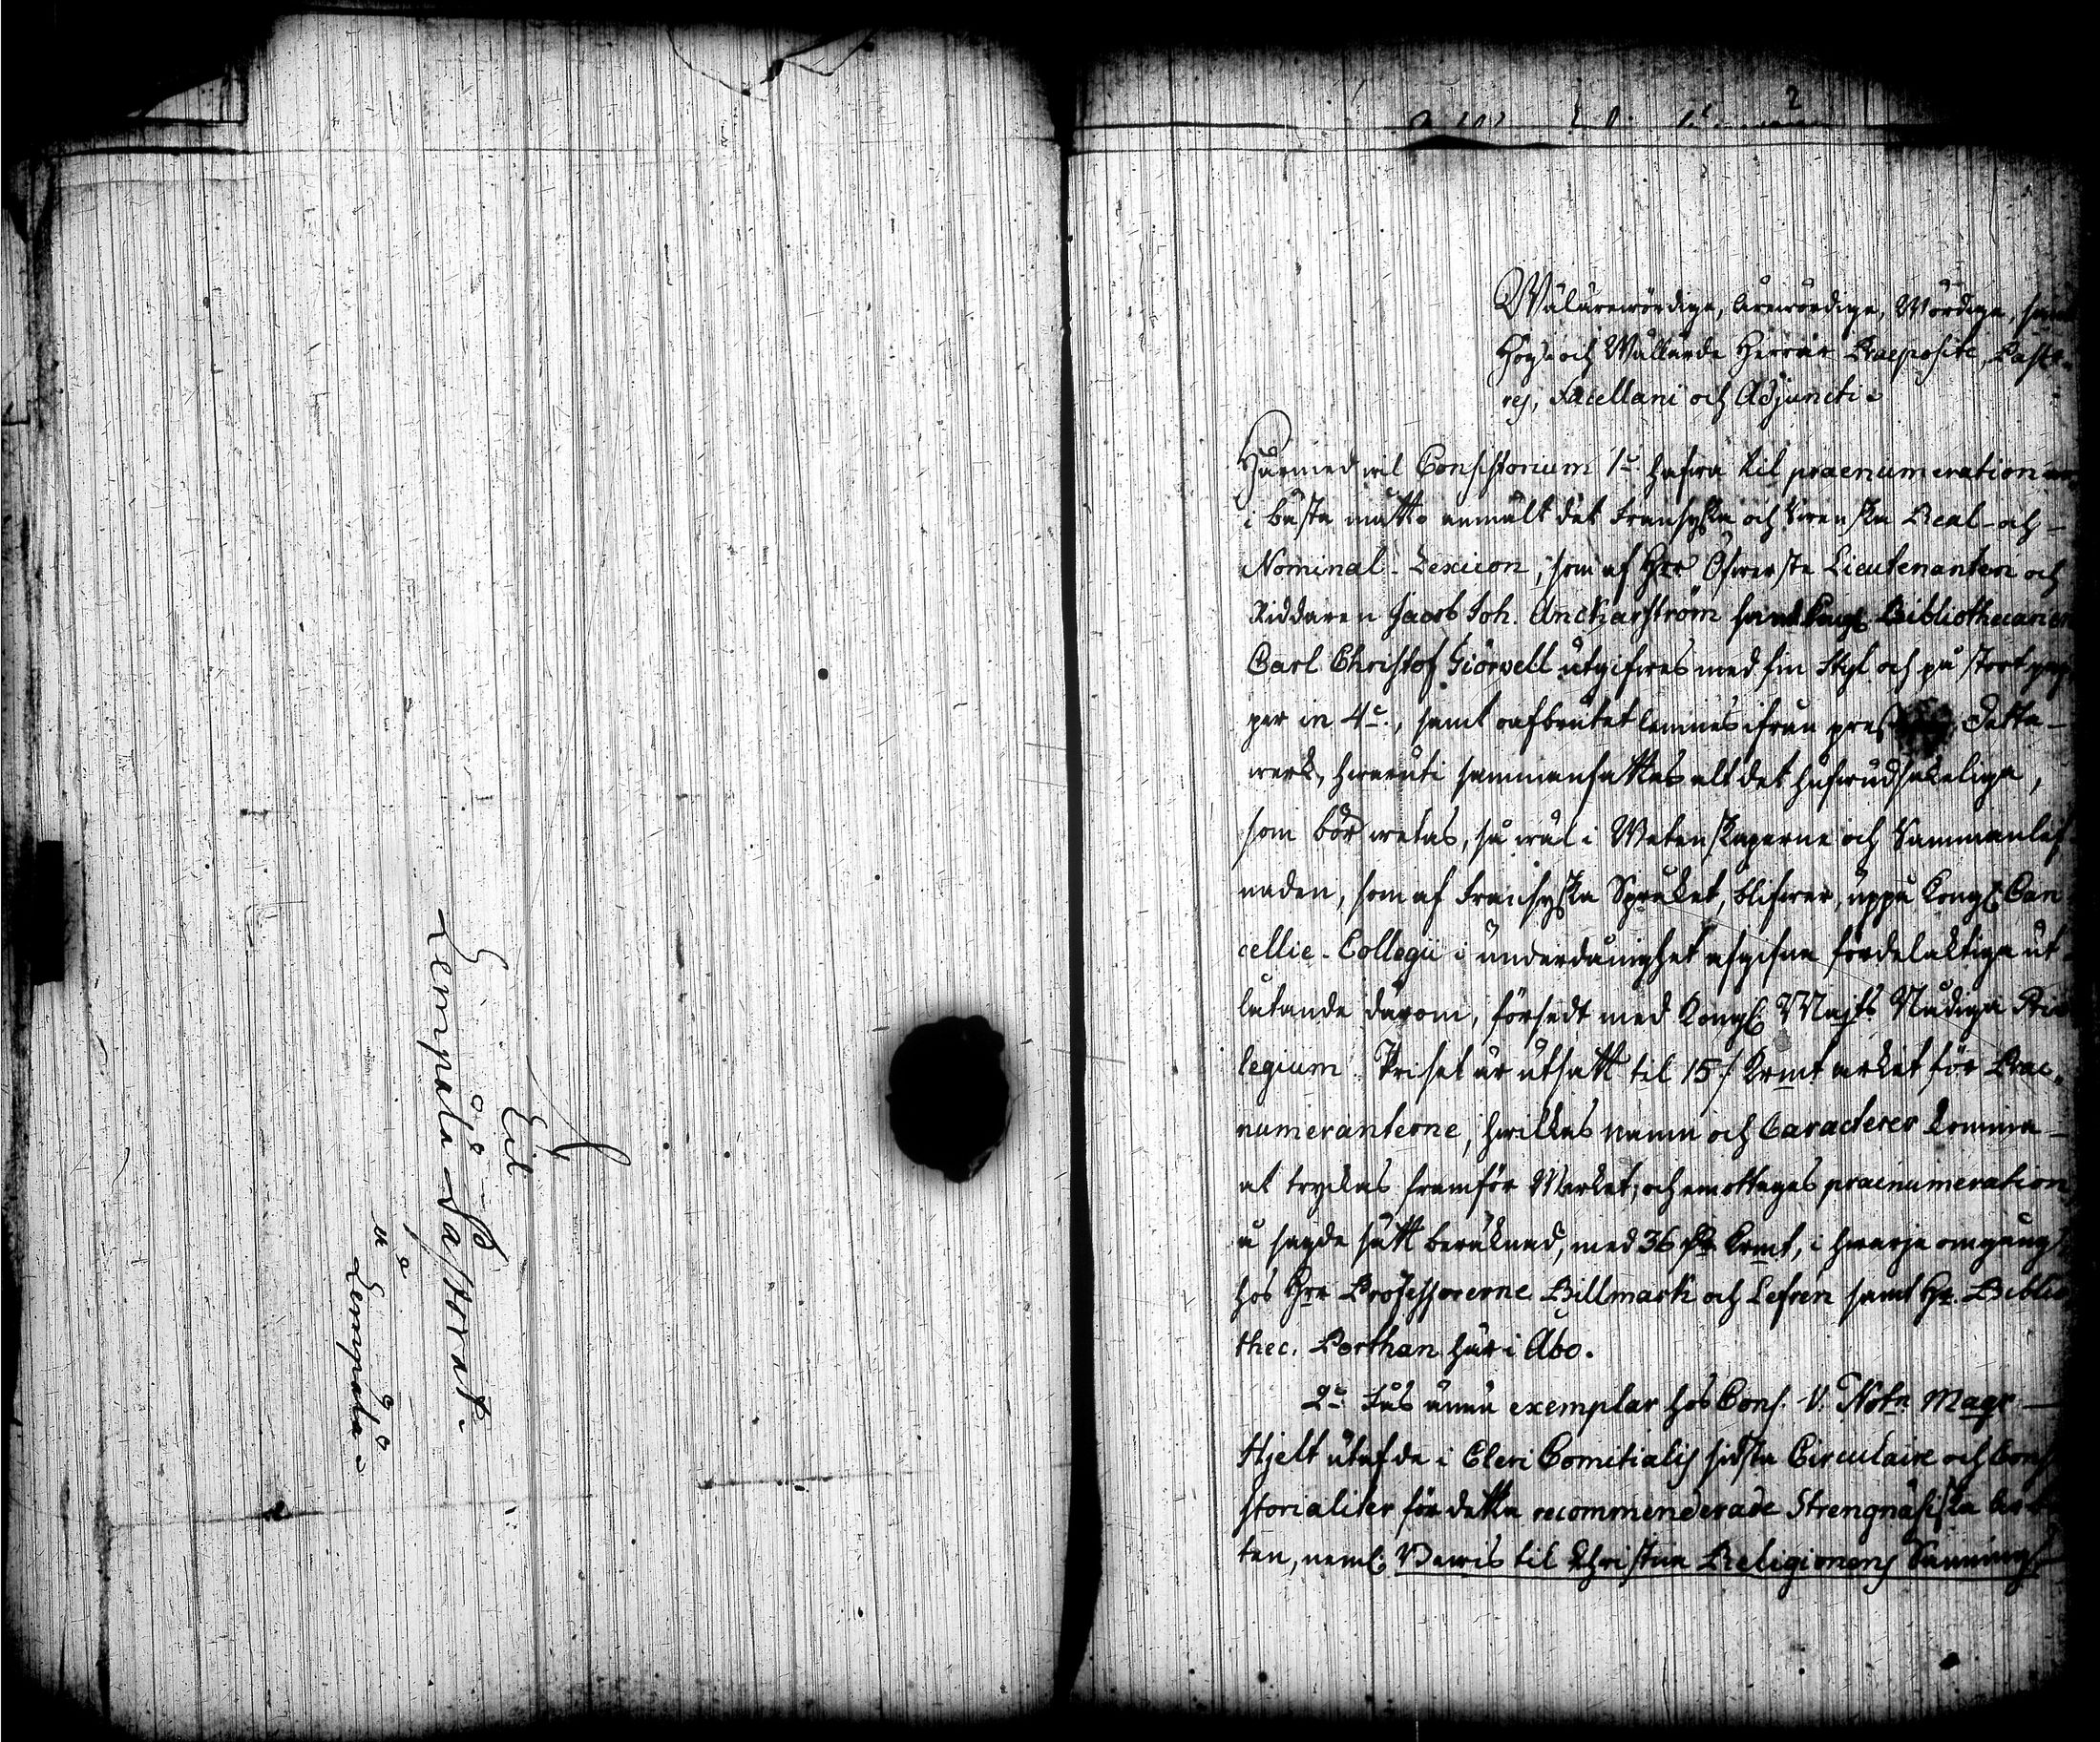 Til
Lempälä Pastorat.
på
Lempälä.
2
Wälärewördige, Ärewördige, Wördige, samt
Hög- och Wällärde Herrar Præposite, Pasto-
res, Sacellani och Adjuncti
Härmed wil Consistorium 1:o hafwa til prænumeration
i bästa måtto anmält det Fransyska och Swenska Real- och
Nominal-Lexicon, som af Herr Öfwerste Lieutenanten och
Riddaren Jacob Joh. Anckarström samt Kongl. Bibliothecarien
Carl Christof Giörvell utgifwes med fin Styl och på stort pap-
per in 4:o, samt oafbrutet lemnas ifrån pressen. Detta
werk, hwaruti sammanfattas alt det hufwudsakeliga,
som bör wetas, så wäl i Wetenskaperne och Sammanlef-
naden, som af Fransyska Språket, blifwer, uppå Kongl. Can-
cellie-Collegii i underdånighet afgifna fördelaktiga ut-
låtande därom, försedt med Kongl. Majts Nådiga Privi-
legium. Priset är utsatt til 15 / Krmt arket för Præ-
numeranterne, hwilkas namn och Caracterer komma
at tryckas framför Werket; och emottages prænumeration
å sagde sätt beräknad, med 36 Krmt, i hwarje omgång
hos Herr Professorerne Billmark och Lefren samt Hr. Biblio-
thec. Porthan här i Åbo.
2:o Fås ännu exemplar hos Cons. V. Notn Magr
Hjelt utaf de i Cleri Comitialis sidsta Circulaire och Consi-
storialiter för detta recommenderade Strengnäsiska
ten, neml. Bewis til Christna Religionens Sannings